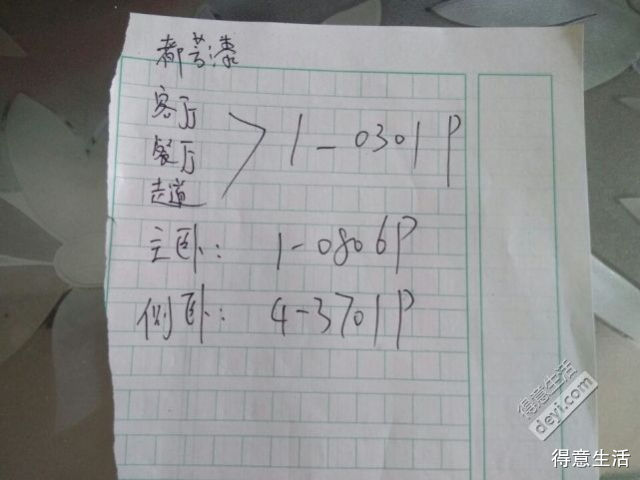 都芳漆
客厅
餐厅
走道
1-0301P
主卧: 1-0806P
侧卧: 4-3701P
得意生活
deyi.com
得意生活